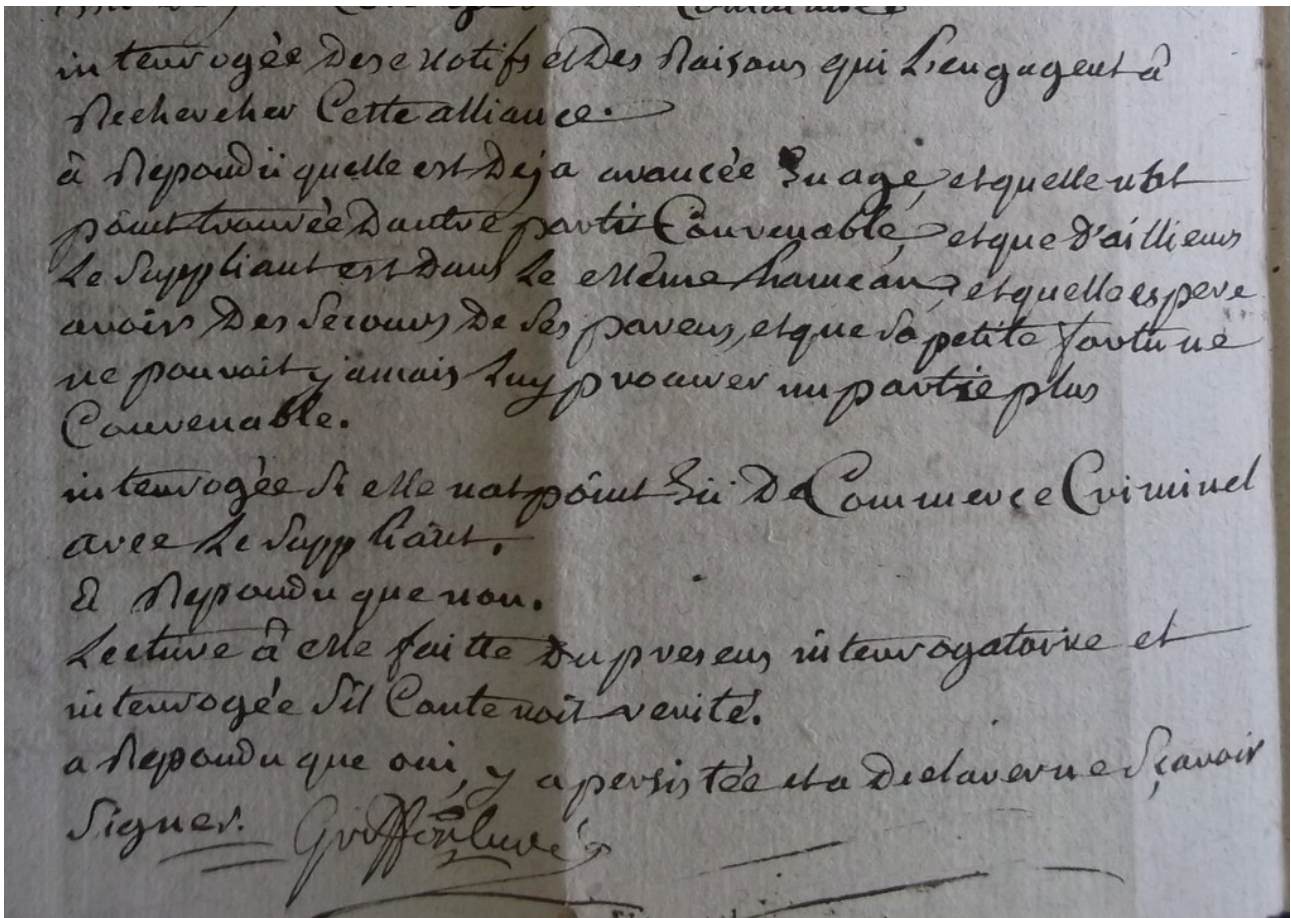 interrogée Des Motifs et Des Raisons qui L'engagent à
Rechercher Cette alliance.
à Repondü quelle est Deja avancée En age, et quelle nat
point trouvée Dautre partis Convenable, et que D'aillieurs
Le Suppliant est Dans Le Même hameau, et quelle espere
avoirs Des Secours De Ses parens, et que Sa petite fortune
ne pouvoit jamais Luy procurer un partie plus
Convenable.
interrogée Si elle nat point Eü De Commerce Criminel
avec Le Suppliant.
à Repondu que non.
Lecture à elle faitte Du presens interrogatoire et
interrogée Sil Contenoit verité.
a Repondu que oui, y a persistée et a Declarer ne Sçavoir
Signer.